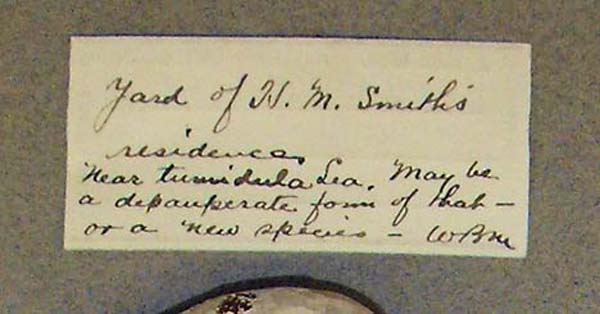 Yard of H. M. Smith's
residence.
Near tumidula Lea. May be
a depauperate form of that —
or a new species — WBM